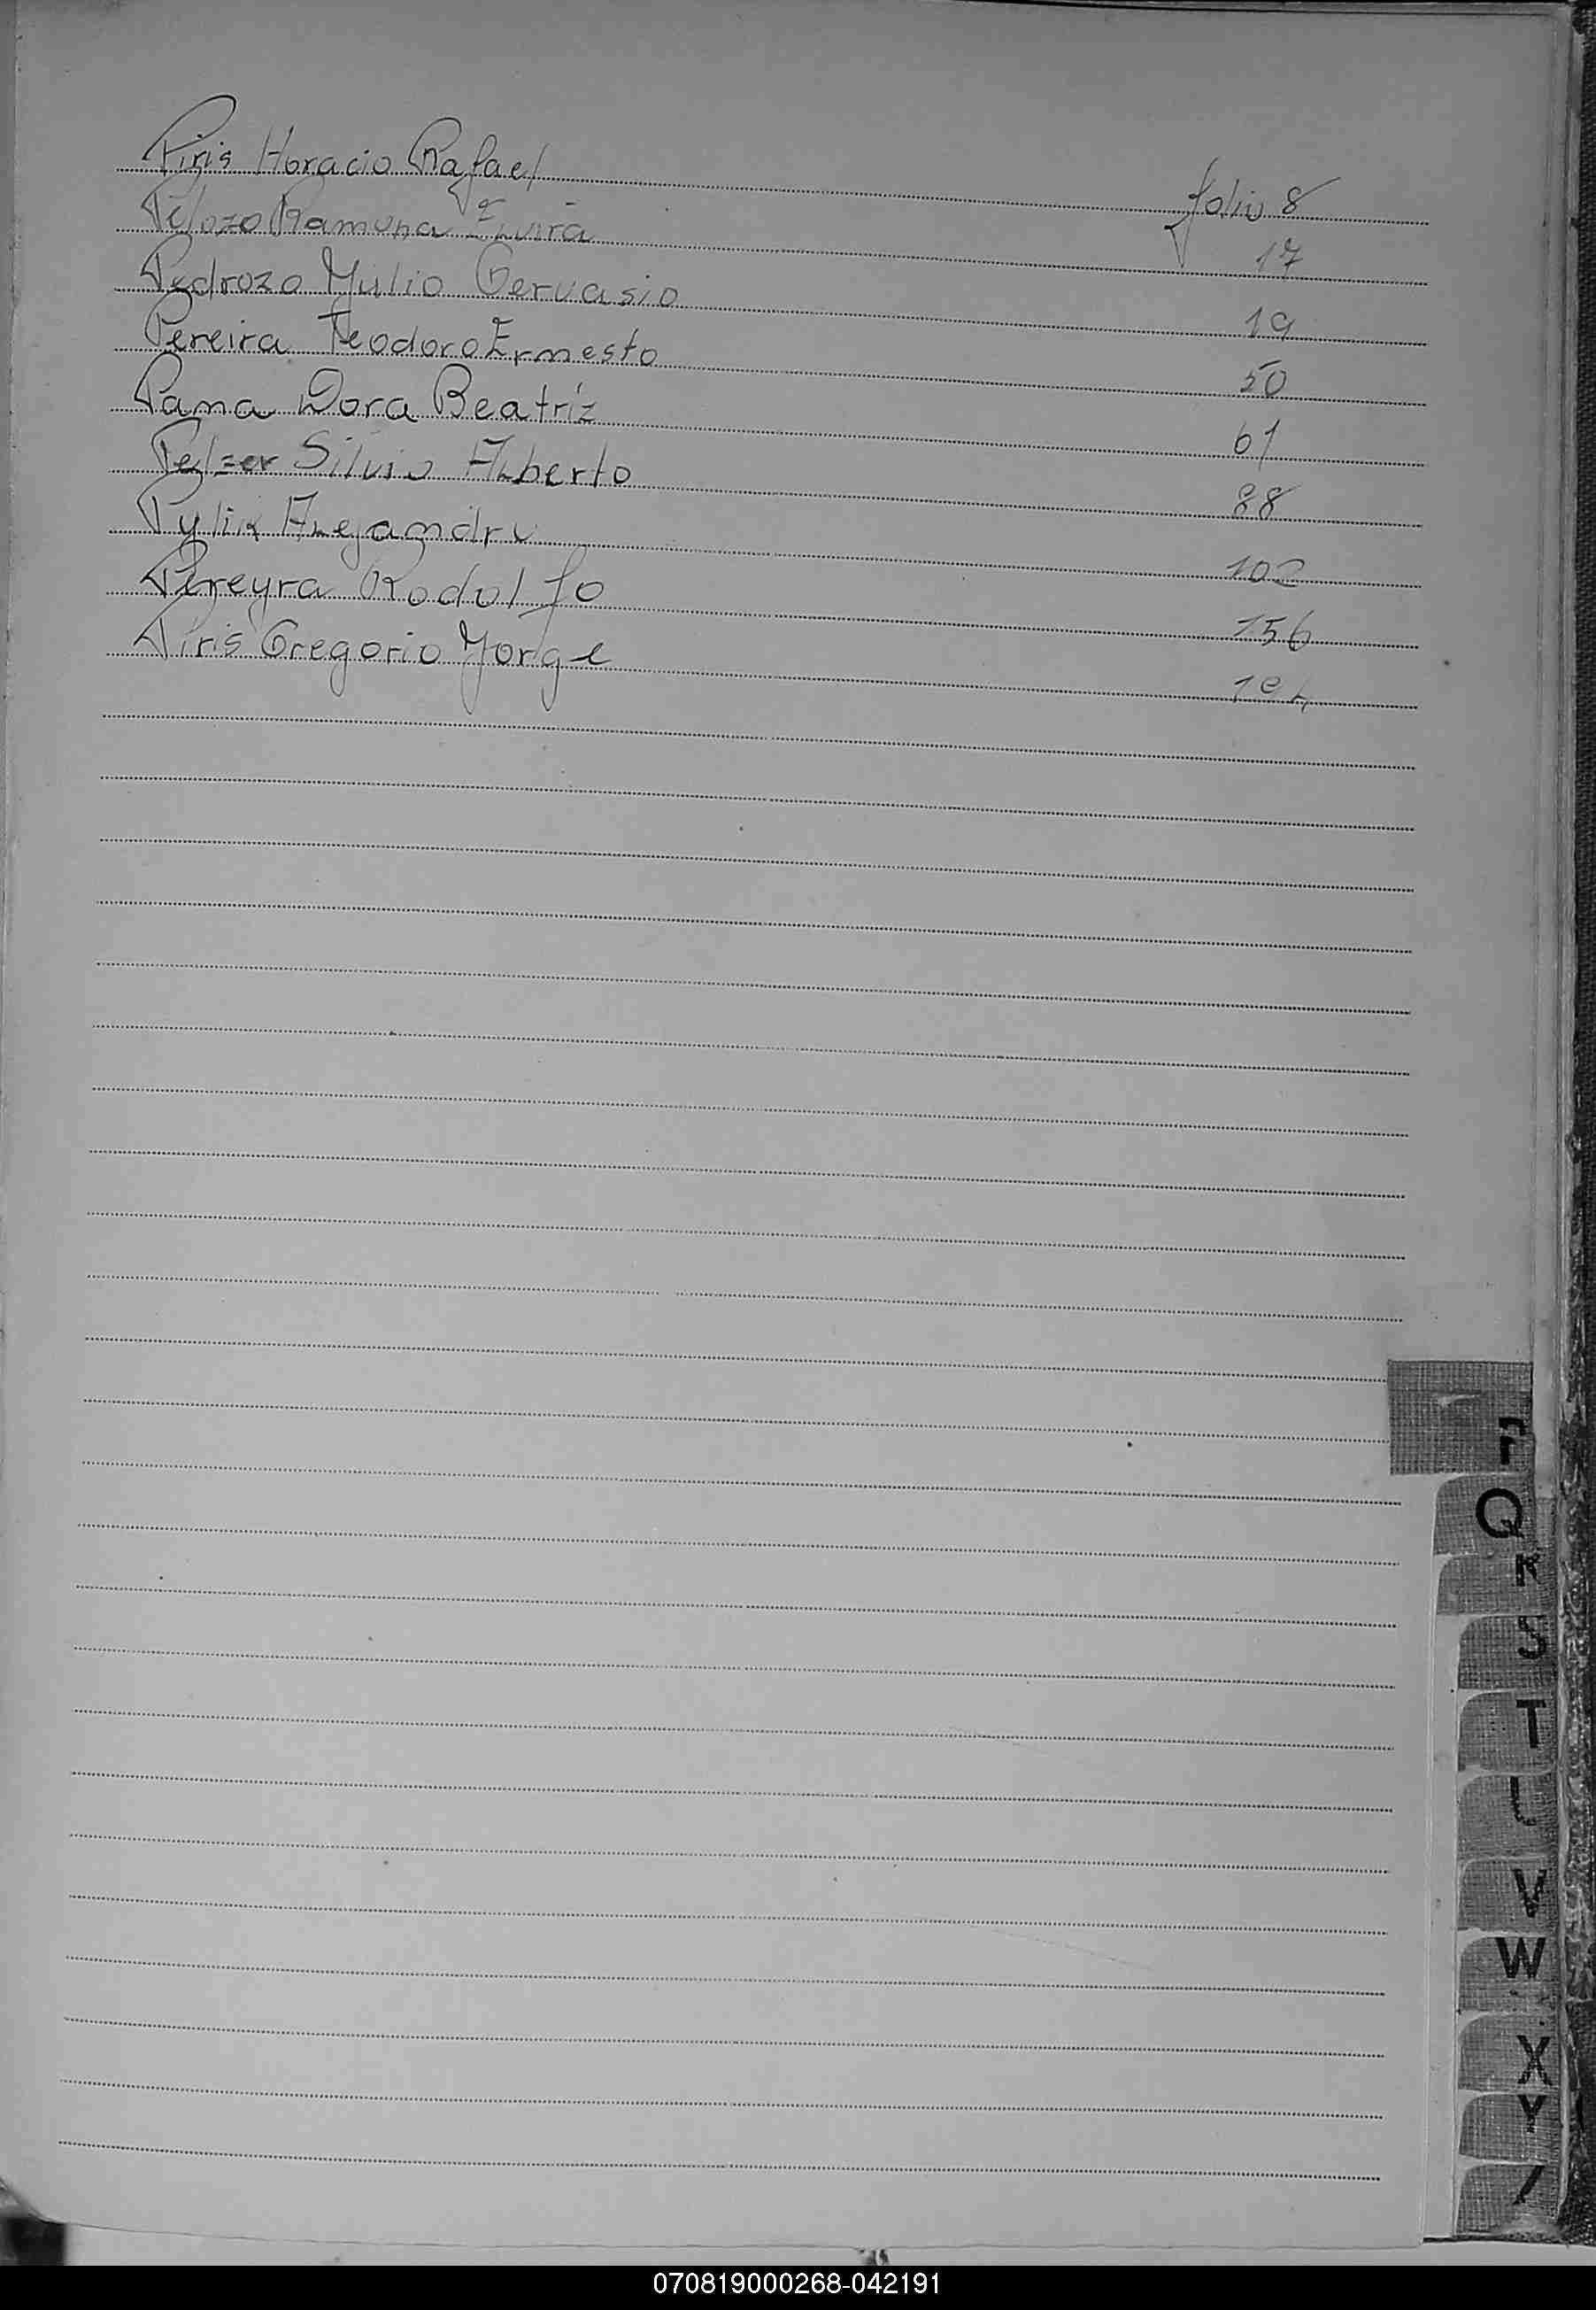 Piris Horacio Rafael folio 8
Pelozo Ramona Elvira 17
Pedrozo Julio Gervasio 19
Pereira Teodoro Ernesto 50
Pama Dora Beatríz 61
Pelzer Silvio Alberto 88
Pylik Alejandro 102
Pereyra Rodolfo 156
Piris Gregorio Jorge
P
Q
R
S
T
U
V
W
X
Y
070819000268-042191